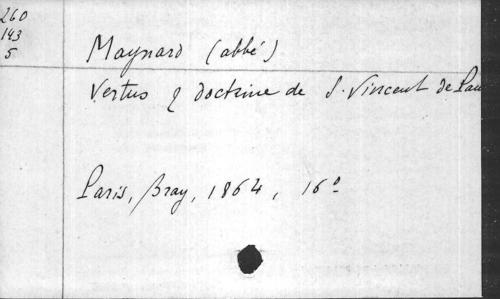 260
143
5
Maynard (abbé)
Vertus & doctrine de S. Vincent de Pau
Paris, Bray, 1864, 16º